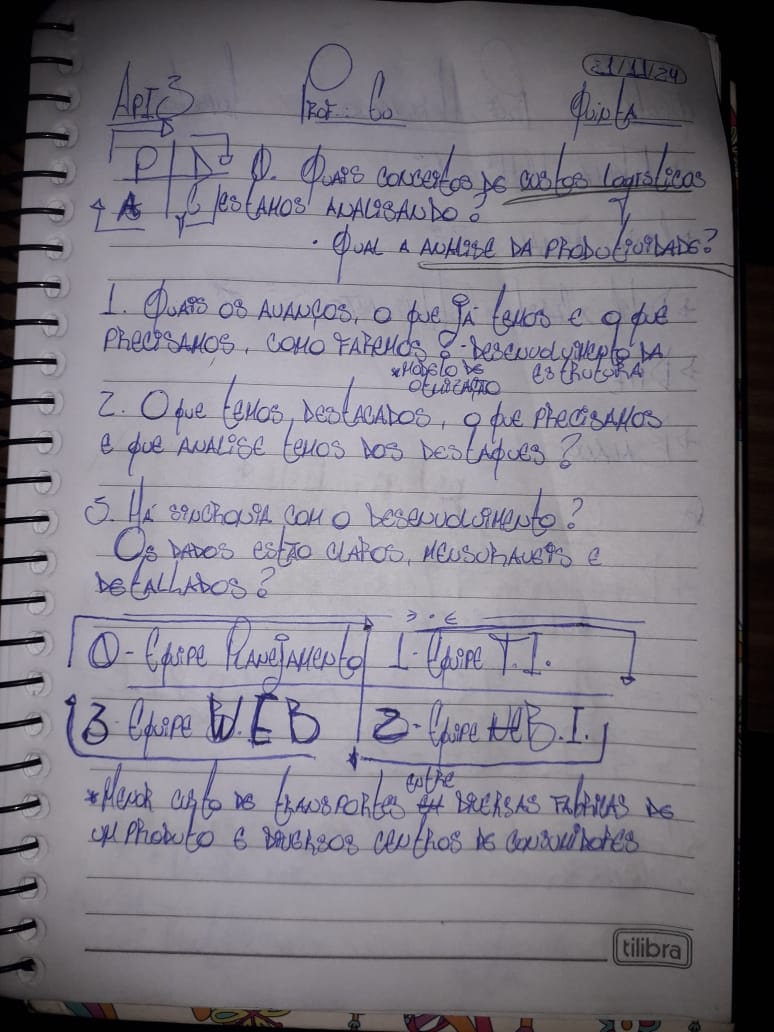 21/11/24
API 3 Prof: Cu Quinta
P D 0. Quais conceitos de custos logísticos
A C estamos analisando?
· Qual a analise da produtividade?
1. Quais os avanços, o que já temos e o que
precisamos, como faremos? - Desenvolvimento da
*Modelo de estrutura
otimização
2. O que temos, destacados, o que precisamos
e que analise temos dos destaques?
3. Há sincronia com o desenvolvimento?
Os dados estão claros, mensuraveis e
detalhados?
0 - Equipe Planejamento 1 - Equipe T.I.
3 - Equipe WEB 2 - Equipe B.I.
entre
*Menor custo de transportes diversas fabricas de
um produto e diversos centros de consumidores
tilibra